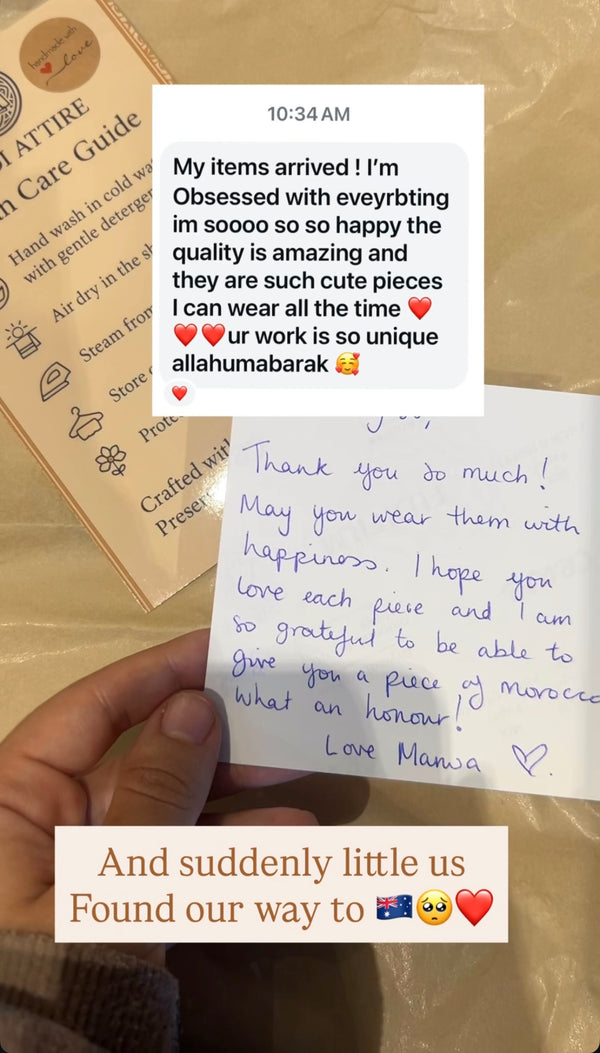 handmade with
love
ATTIRE
Care Guide
Hand wash in cold
with gentle
Air dry in the
Steam from
Store
Crafted
10:34 AM
My items arrived ! I’m
Obsessed with eveyrbting
im soooo so so happy the
quality is amazing and
they are such cute pieces
I can wear all the time ❤️
❤️❤️ur work is so unique
allahumabarak 🥰
❤️
Thank you so much!
May you wear them with
happiness. I hope you
love each piece and I am
so grateful to be able to
give you a piece of morocco
what an honour!
Love Marwa ♡.
And suddenly little us
Found our way to 🇦🇺🥺❤️